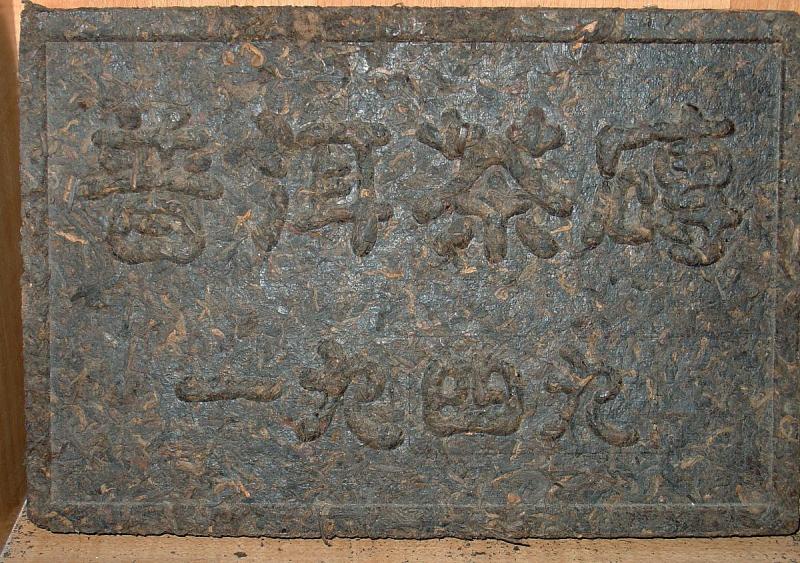 普洱茶磚
一九四九